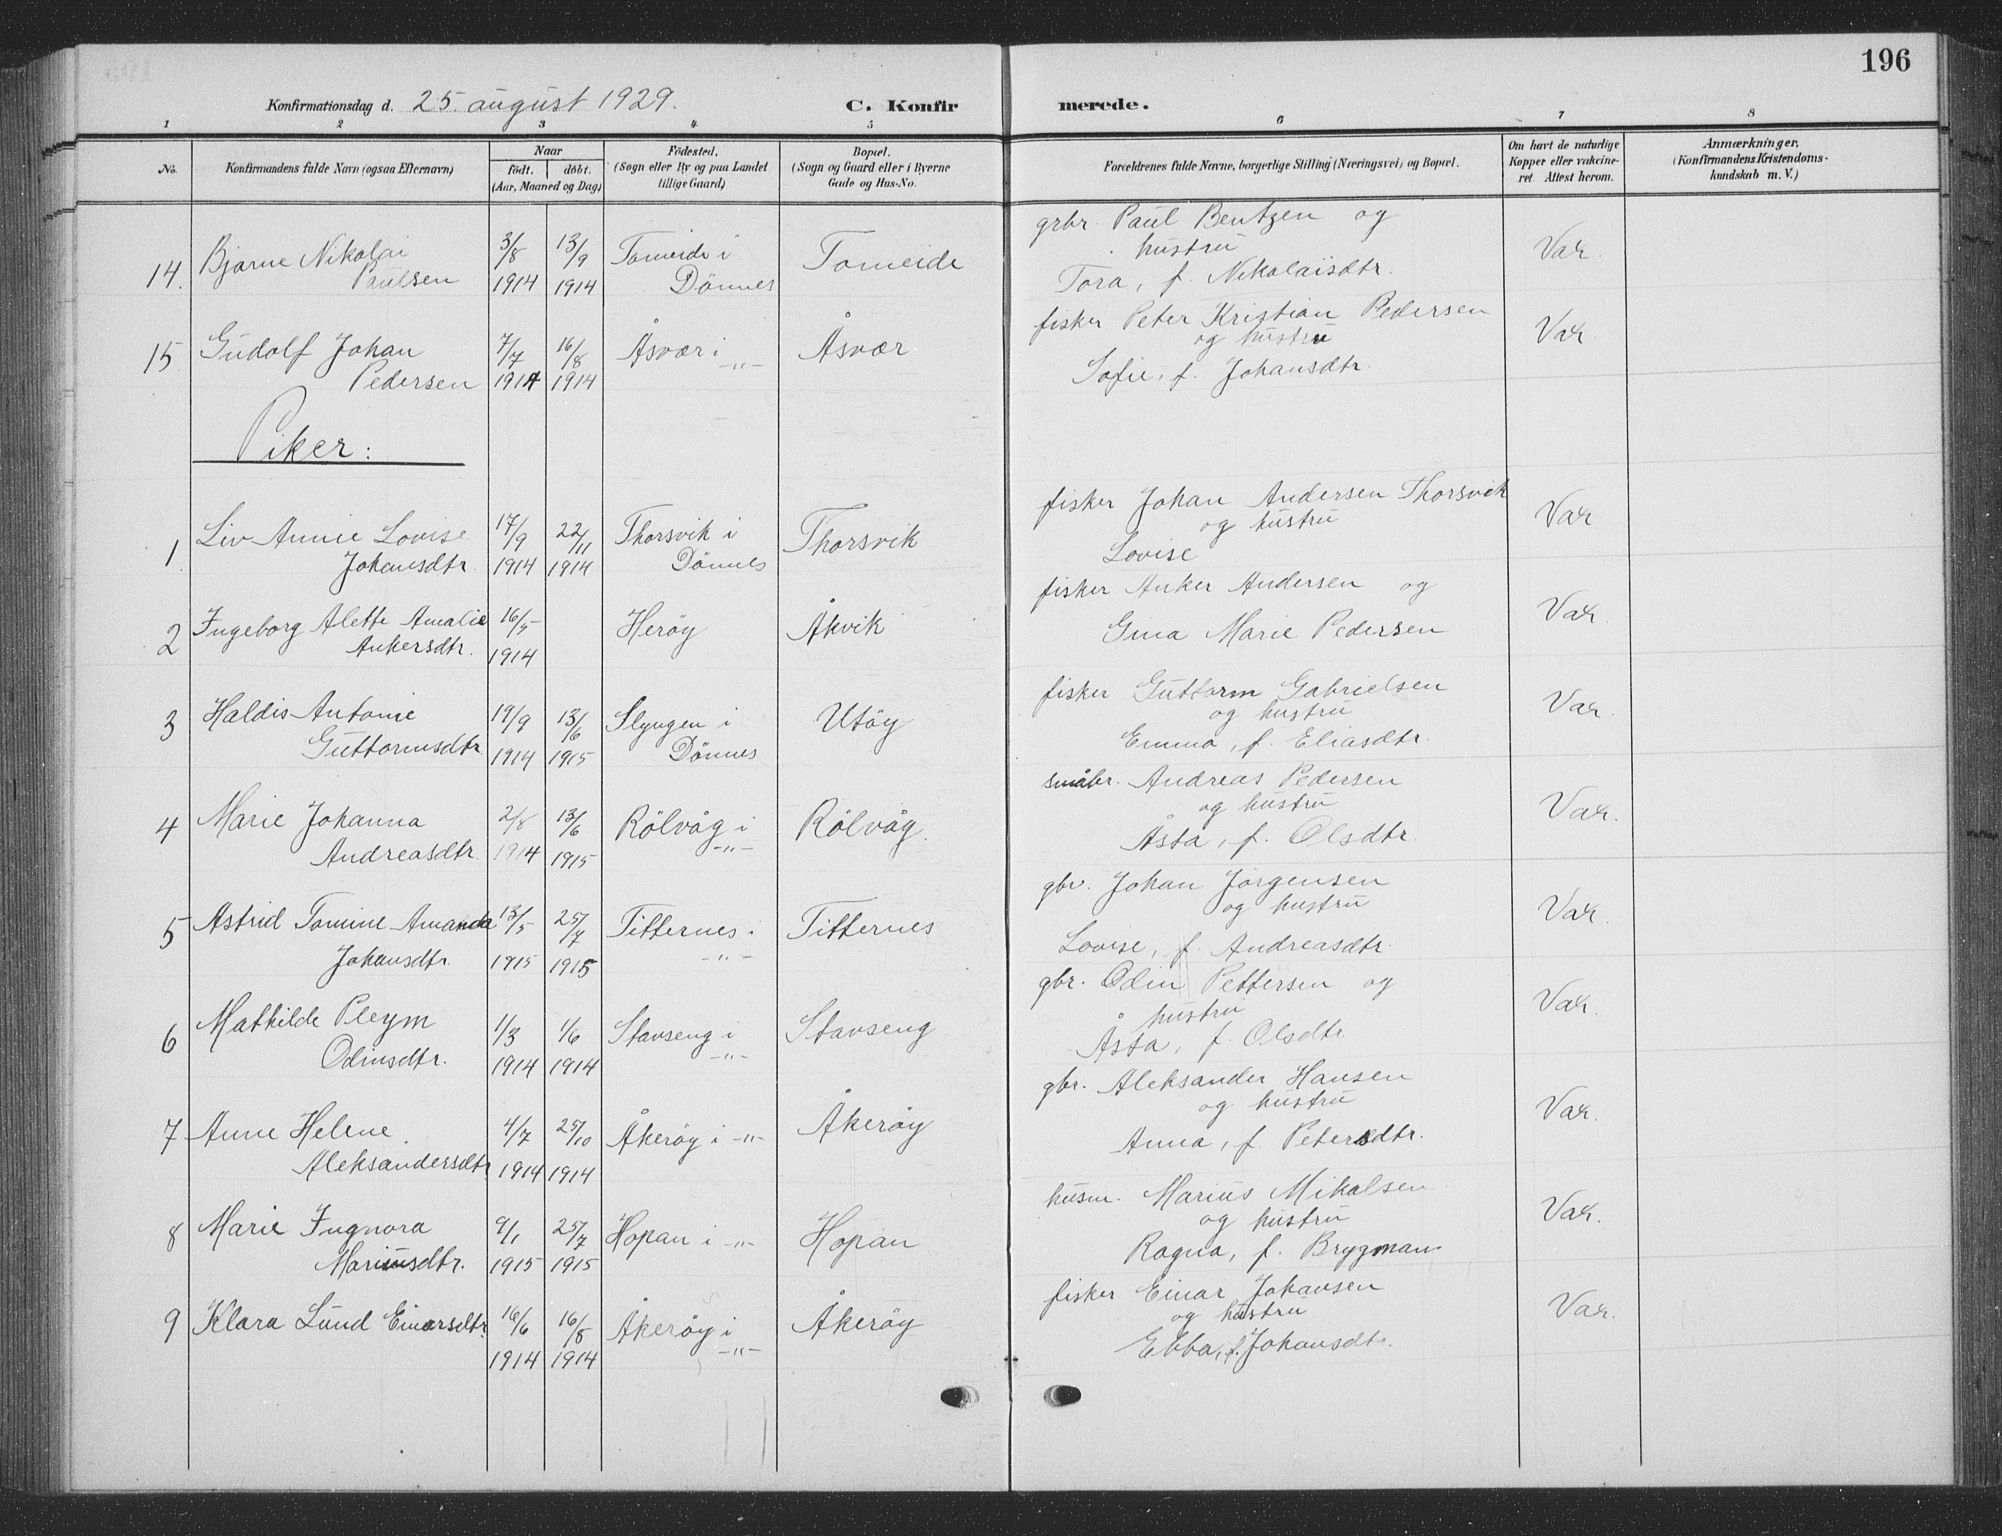 196
Konfirmationsdag d. 25 august 1929. C. Konfirmerede.
1 2 3 4 5 6 7 8
No. Konfirmandens fulde Navn (ogsaa Efternavn) Naar födt. döbt. (Aar, Maaned og Dag) Födested. (Sogn eller By og paa Landet tillige Gaard) Bopæl. (Sogn og Gaard eller i Byerne Gade og Hus-No. Forældrenes fulde Navne, borgerlige Stilling (Næringsvei) og Bopæl. Om havt de naturlige Kopper eller vakcineret. Attest herom. Anmærkninger. (Konfirmandens Kristendomskundskab m. V.)
14. Bjarne Nikolai Paulsen 3/8 1914 13/9 1914 Tomeide i Dönnes Tomeide grbr. Paul Bentzen og hustru Tora, f. Nikolaisdtr. Var.
15 Gudolf Johan Pedersen 7/7 1914 16/8 1914 Åsvær i -"- Åsvær fisker Peter Kristian Pedersen og hustru Sofie, f. Johansdtr. Var
Piker:
1. Liv Annie Lovise Johansdtr. 17/9 1914 22/11 1914 Thorsvik i Dönnes Thorsvik fisker Johan Andersen Thorsvik og hustru Lovise Var
2 Ingeborg Alette Amalie Ankersdtr. 16/5 1914 Heröy Åkvik fisker Anker Andersen og Gina Marie Pedersen Var.
3 Haldis Antonie Guttormsdtr 19/9 1914 13/6 1915 Slyngen i Dönnes Utöy fisker Guttorm Gabrielsen og hustru Emma, f. Eliasdtr. Var.
4 Marie Johanna Andreasdtr. 2/8 1914 13/6 1915 Rölvåg i -"- Rölvåg. småbr. Andreas Pedersen og hustru Åsta, f. Olsdtr. Var.
5 Astrid Tomine Amanda Johansdtr. 13/5 1915 25/7 1915 Titternes i -"- Titternes gbr. Johan Jörgensen og hustru Lovise, f. Andreasdtr. Var.
6 Mathilde Pleym Odinsdtr. 1/3 1914 1/6 1914 Stavseng i -"- Stavseng gbr. Odin Pettersen og hustru Åsta, f. Olsdtr. Var.
7 Anne Helene Aleksandersdtr 4/7 1914 25/10 1914 Åkeröy i -"- Åkeröy gbr. Aleksander Hansen og hustru Anna, f. Petersdtr. Var.
8 Marie Ingnora Mariusdtr. 9/1 1915 25/7 1915 Hopan i -"- Hopan husm. Marius Mikalsen og hustru Ragna, f. Brygman Var.
9 Klara Lund Einarsdtr 16/6 1914 16/8 1914 Åkeröy i -"- Åkeröy fisker Einar Johansen og hustru Ebba, f. Johansdtr. Var.